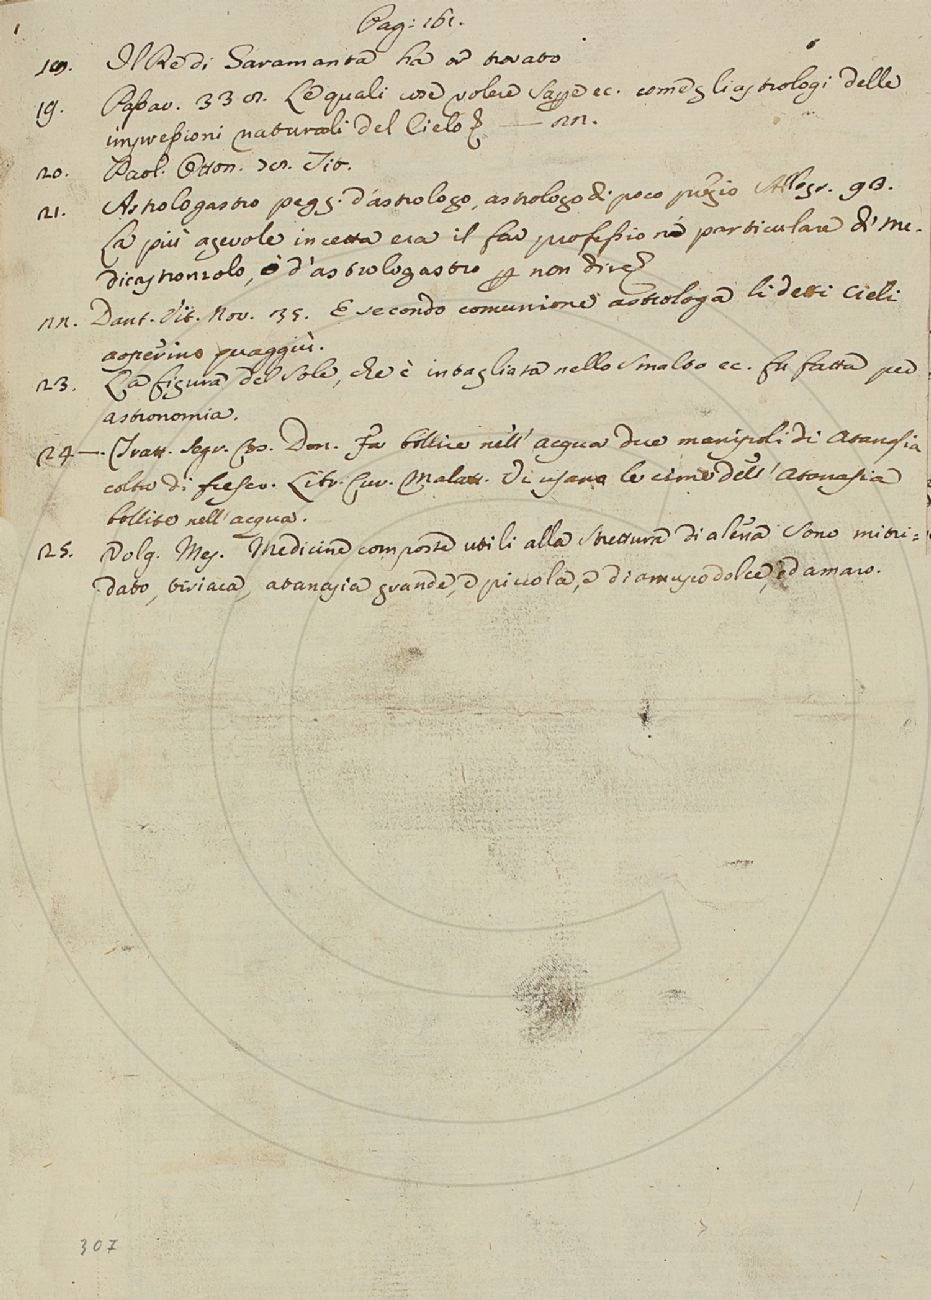 Pag: 161.
19. Il Re di Garamanta ha or trovato
19. Passav. 33 Le quali cose volere sapere ec. come gli astrologi delle
impressioni naturali del Cielo
20. Paol. Oros.
21. Astrologastro pegg. d'astrologo, astrologo di poco pregio Allegr. 93.
La più agevole incetta era il far professione particulare di me-
dicastronzolo, o d'astrologastro non dire
22. Dant. Vit. Nov. 35. E secondo comunione astrologa li detti Cieli
aoperino quaggiù.
23. La figura del Sole, che è intagliata nello Smalto ec. fu fatta per
astronomia.
24 —. Tratt. Segr. Cos. Don. Fa bollire nell'acqua due manipoli di atanasia
colta di fresco. Libr. Cur. Malatt. Si usano le cime dell'atanasia
bollite nell'acqua.
25. Volg. Mes. Medicine composte utili alla Strettura di alena Sono mitri=
dato, tiriaca, atanasia grande, e piccola, e diamusco dolce, ed amaro.
307